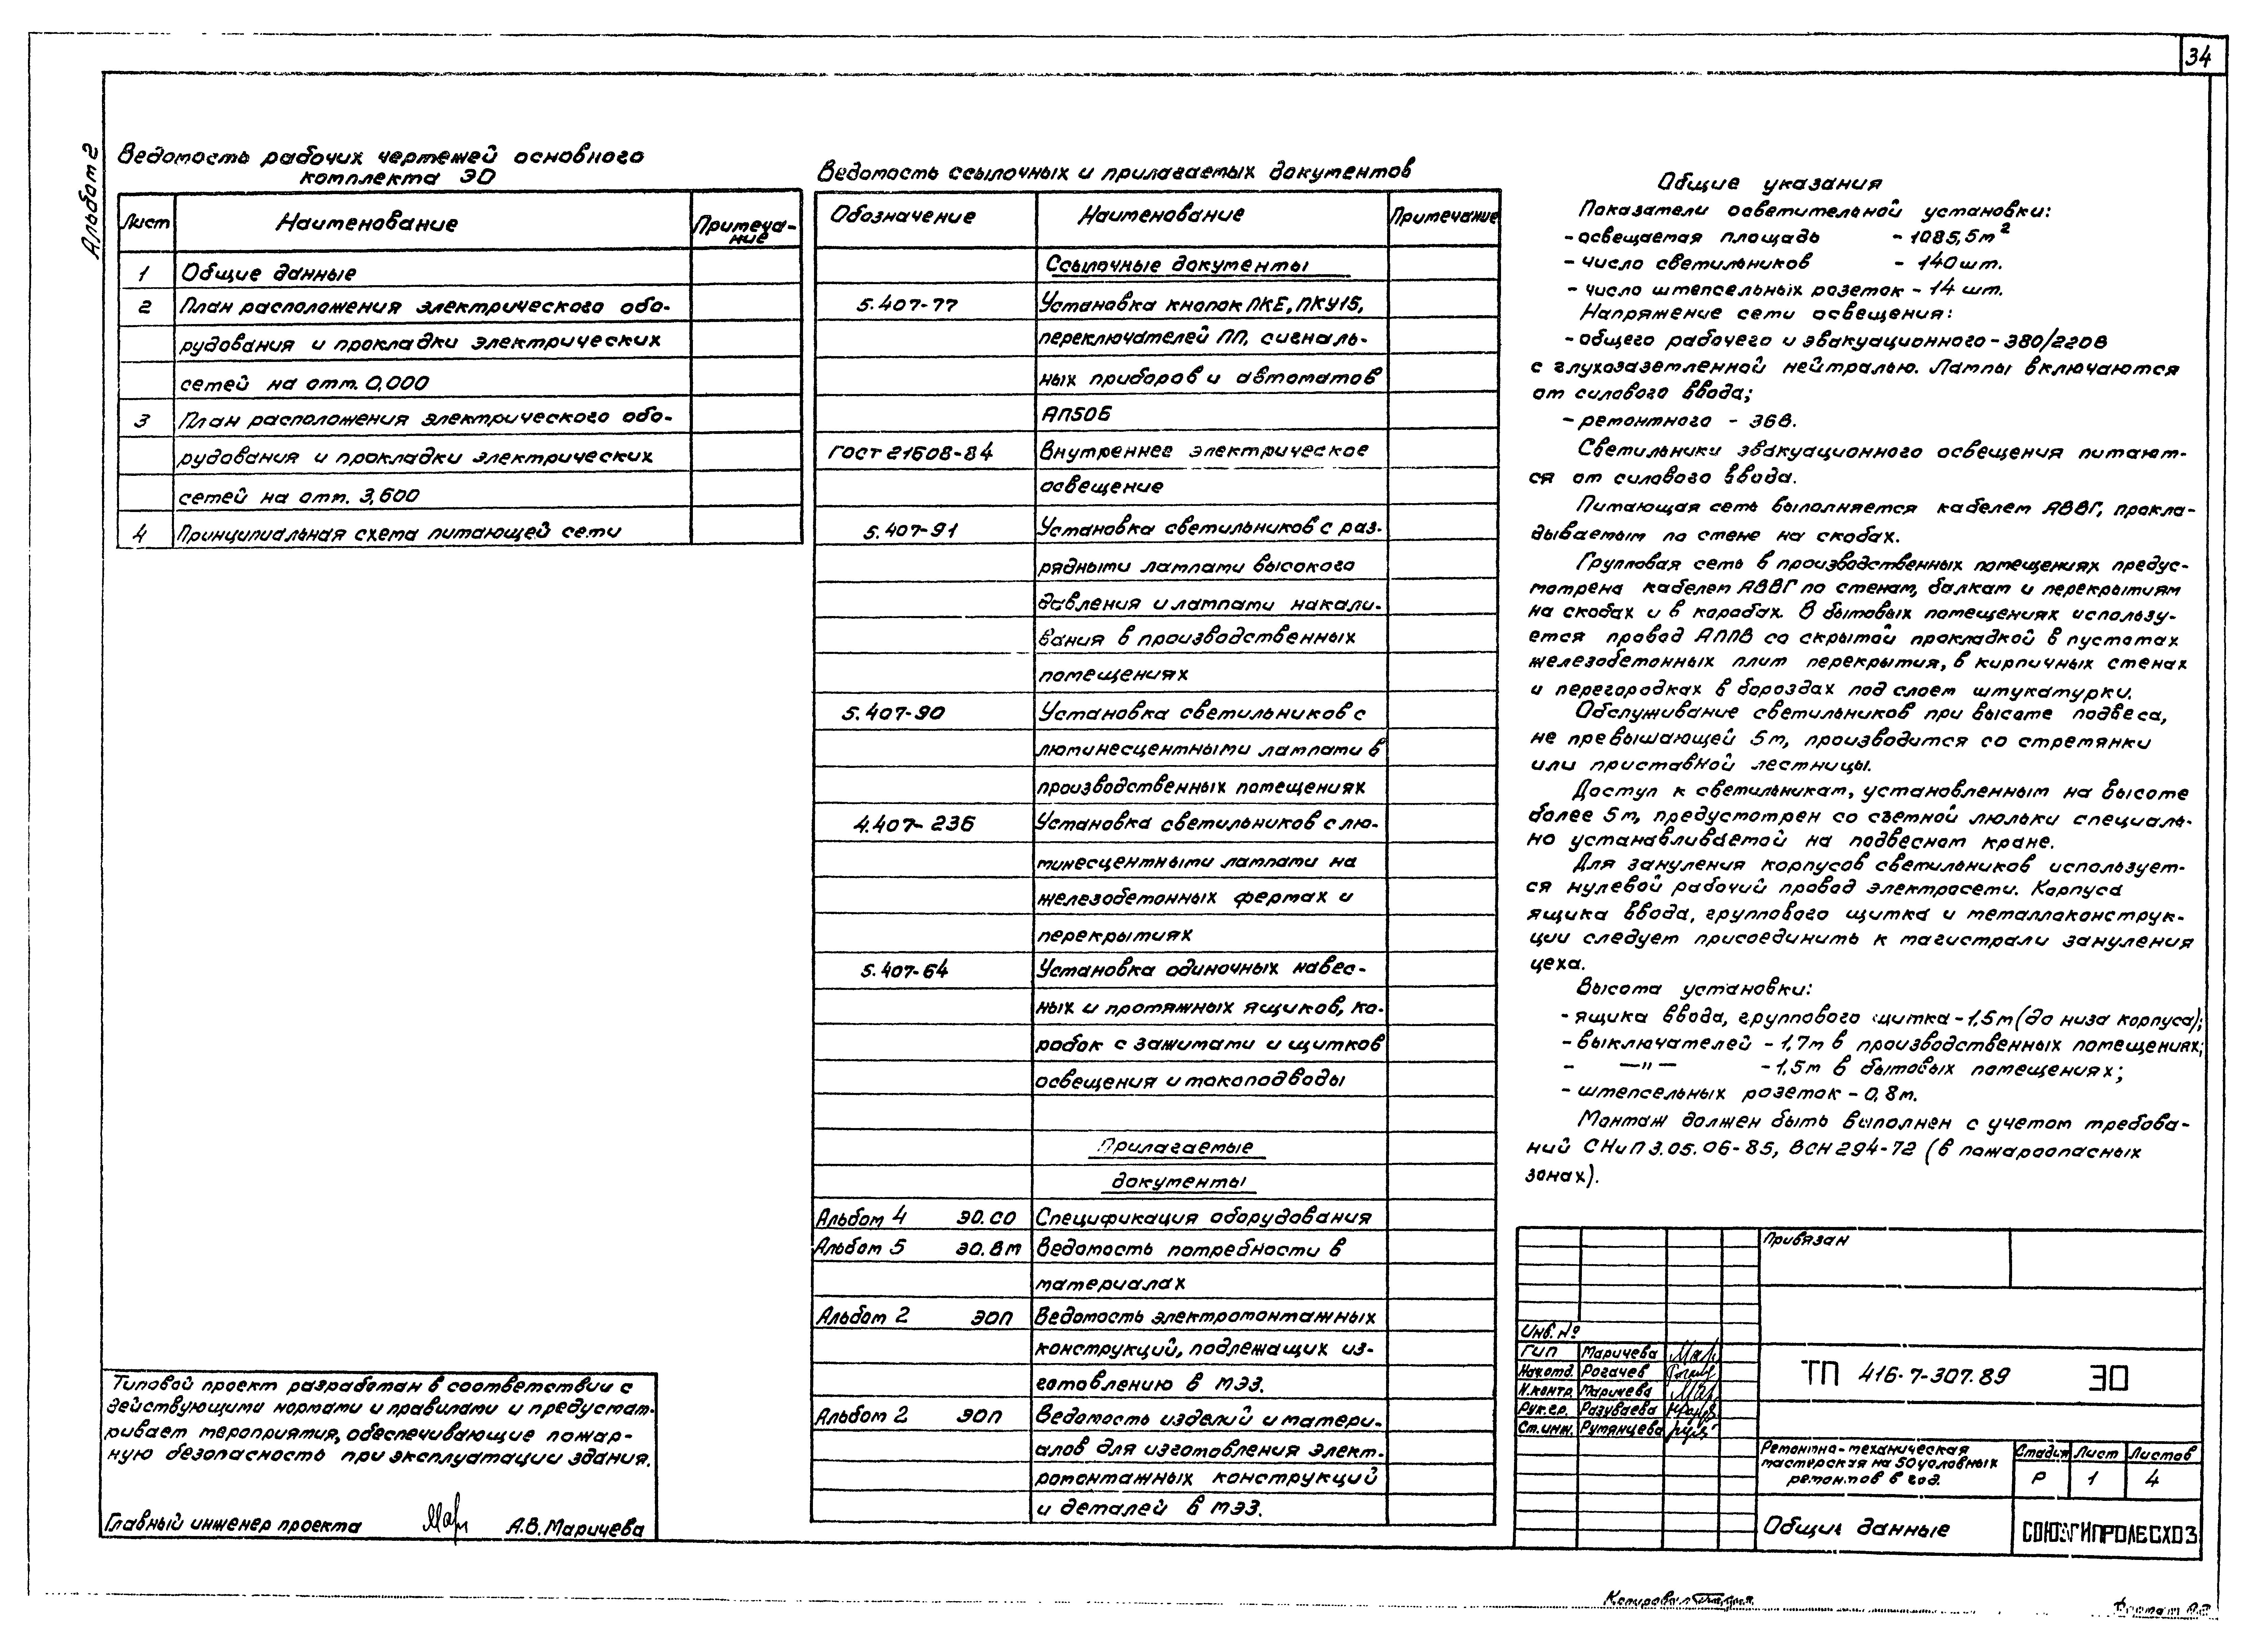 34
Альбом 2
Ведомость рабочих чертежей основного
комплекта ЭО
Лист Наименование Примеча-
ние
1 Общие данные
2 План расположения электрического обо-
рудования и прокладки электрических
сетей на отм. 0,000
3 План расположения электрического обо-
рудования и прокладки электрических
сетей на отм. 3,600
4 Принципиальная схема питающей сети
Типовой проект разработан в соответствии с
действующими нормами и правилами и предусмат-
ривает мероприятия, обеспечивающие пожар-
ную безопасность при эксплуатации здания.
Главный инженер проекта А.В. Маричева
Ведомость ссылочных и прилагаемых документов
Обозначение Наименование Примечание
Ссылочные документы
5.407-77 Установка кнопок ПКЕ, ПКУ15,
переключателей ПП, сигналь-
ных приборов и автоматов
АП50Б
ГОСТ 21608-84 Внутреннее электрическое
освещение
5.407-91 Установка светильников с раз-
рядными лампами высокого
давления и лампами накали-
вания в производственных
помещениях
5.407-90 Установка светильников с
люминесцентными лампами в
производственных помещениях
4.407-236 Установка светильников с лю-
минесцентными лампами на
железобетонных фермах и
перекрытиях
5.407-64 Установка одиночных навес-
ных и протяжных ящиков, ко-
робок с зажимами и щитков
освещения и токоподводы
Прилагаемые
документы
Альбом 4 ЭО.СО Спецификация оборудования
Альбом 5 ЭО.ВМ Ведомость потребности в
материалах
Альбом 2 ЭОП Ведомость электромонтажных
конструкций, подлежащих из-
готовлению в МЭЗ.
Альбом 2 ЭОП Ведомость изделий и матери-
алов для изготовления элект-
ромонтажных конструкций
и деталей в МЭЗ.
Общие указания
Показатели осветительной установки:
- освещаемая площадь - 1085,5м²
- число светильников - 140шт.
- число штепсельных розеток - 14 шт.
Напряжение сети освещения:
- общего рабочего и эвакуационного - 380/220В
с глухозаземленной нейтралью. Лампы включаются
от силового ввода;
- ремонтного - 36В.
Светильники эвакуационного освещения питают-
ся от силового ввода.
Питающая сеть выполняется кабелем АВВГ, прокла-
дываемым по стене на скобах.
Групповая сеть в производственных помещениях предус-
мотрена кабелем АВВГ по стенам, балкам и перекрытиям
на скобах и в коробах. В бытовых помещениях использу-
ется провод АППВ со скрытой прокладкой в пустотах
железобетонных плит перекрытия, в кирпичных стенах
и перегородках в бороздах под слоем штукатурки.
Обслуживание светильников при высоте подвеса,
не превышающей 5м, производится со стремянки
или приставной лестницы.
Доступ к светильникам, установленным на высоте
более 5м, предусмотрен со съемной люльки специаль-
но устанавливаемой на подвесном кране.
Для зануления корпусов светильников использует-
ся нулевой рабочий провод электросети. Корпуса
ящика ввода, группового щитка и металлоконструк-
ции следует присоединить к магистрали зануления
цеха.
Высота установки:
- ящика ввода, группового щитка - 1,5м (до низа корпуса);
- выключателей - 1,7м в производственных помещениях;
- —"— - 1,5м в бытовых помещениях;
- штепсельных розеток - 0,8м.
Монтаж должен быть выполнен с учетом требова-
ний СНиП 3.05.06-85, ВСН 294-72 (в пожароопасных
зонах).
Привязан
Инв. №
ГИП Маричева
Нач.отд. Рогачев
Н.контр. Маричева
Рук.гр. Разуваева
Ст.инж. Румянцева
ТП 416-7-307.89 ЭО
Ремонтно-механическая
мастерская на 50 условных
ремонтов в год.
Стадия Лист Листов
Р 1 4
Общие данные
СОЮЗГИПРОЛЕСХОЗ
Копировал
Формат А2